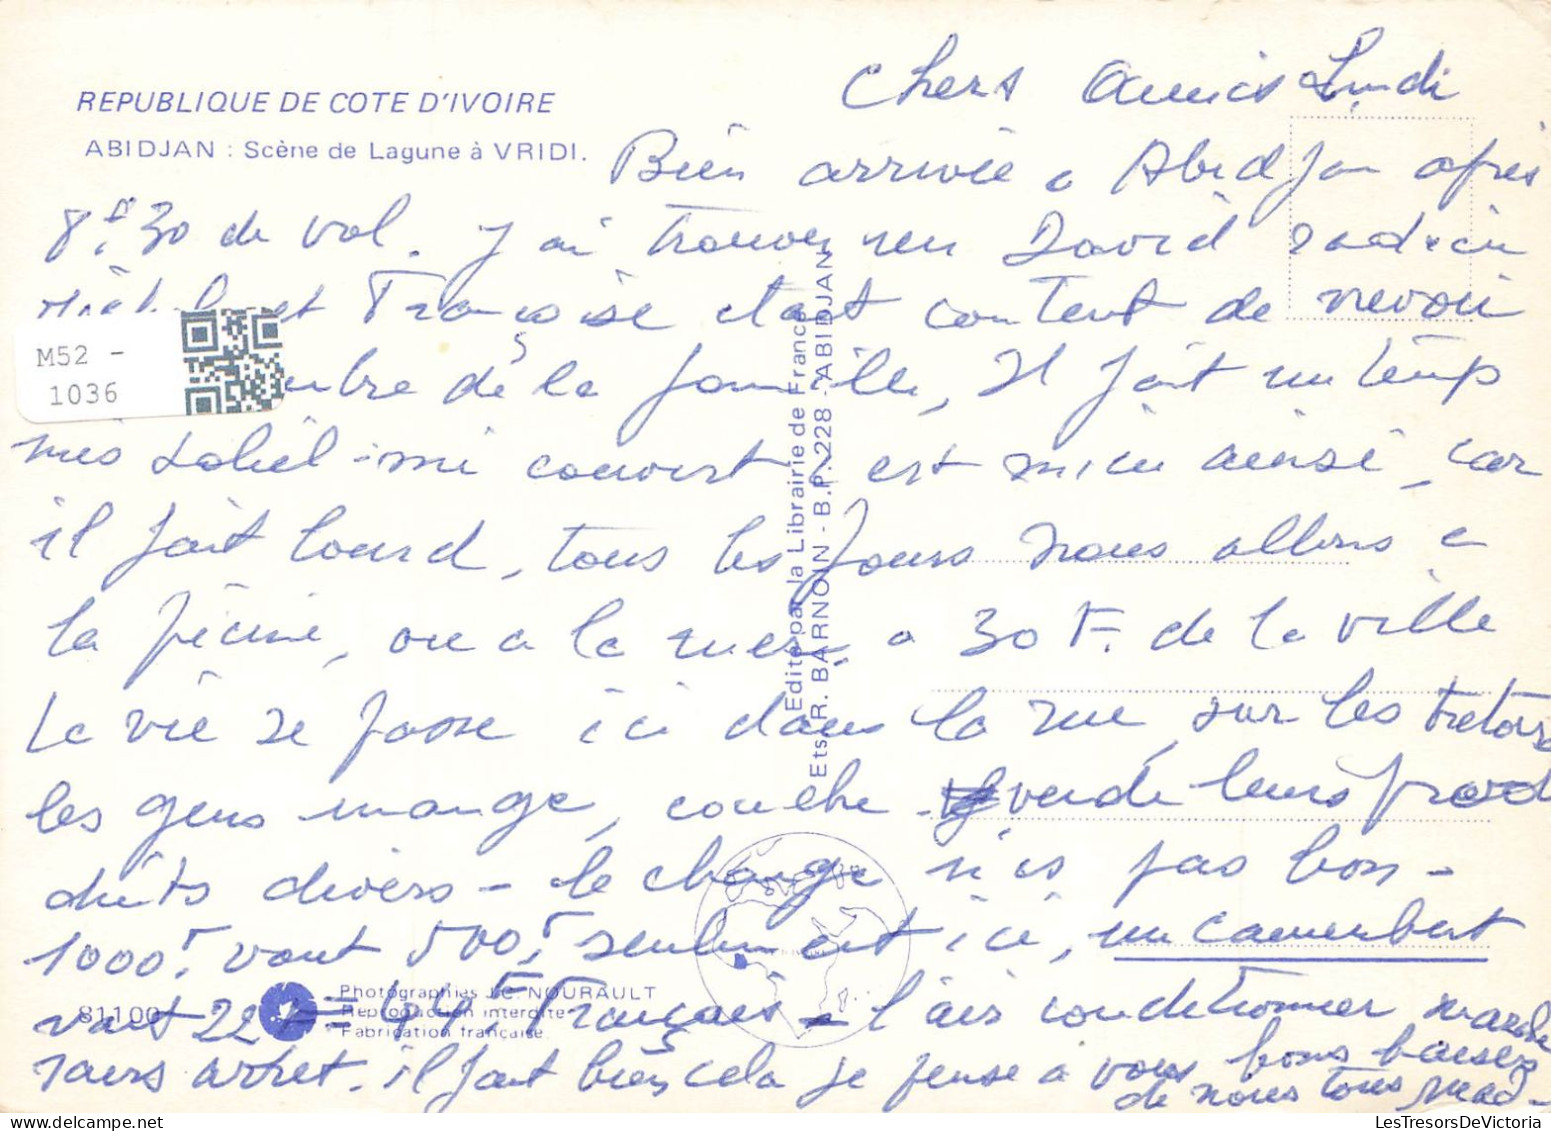 REPUBLIQUE DE COTE D'IVOIRE
ABIDJAN : Scène de Lagune à VRIDI.
Chers Amis Lundi
Bien arrivée a Abidjan après
8h,30 de vol. j'ai trouver un David
et Françoise etait content de revoir
M52 -
1036
de la famille, Il fait un temps
mis soleil - mi couvert est mieu ainsi, car
il fait lourd, tous les jours nous allons a
la piscine, ou a la mer, a 30 K. de la ville
La vie se passe ici dans la rue, sur les tretoirs
les gens mange, couche vende leurs prod
duits divers - le change n'es pas bon -
1000F. vaut 500F. seulement ici, un camembert
vaut 22 = 44F, Français - l'air conditionner marche
sans arret. il fait bien cela je pense a vous bons baisers
de nous tous Mad -
Edité par la Librairie de France
Ets R. BARNOIN - B.P. 228 - ABIDJAN
81100
Photographies J.C. NOURAULT
Reproduction interdite
Fabrication française.
LesTresorsDeVictoria